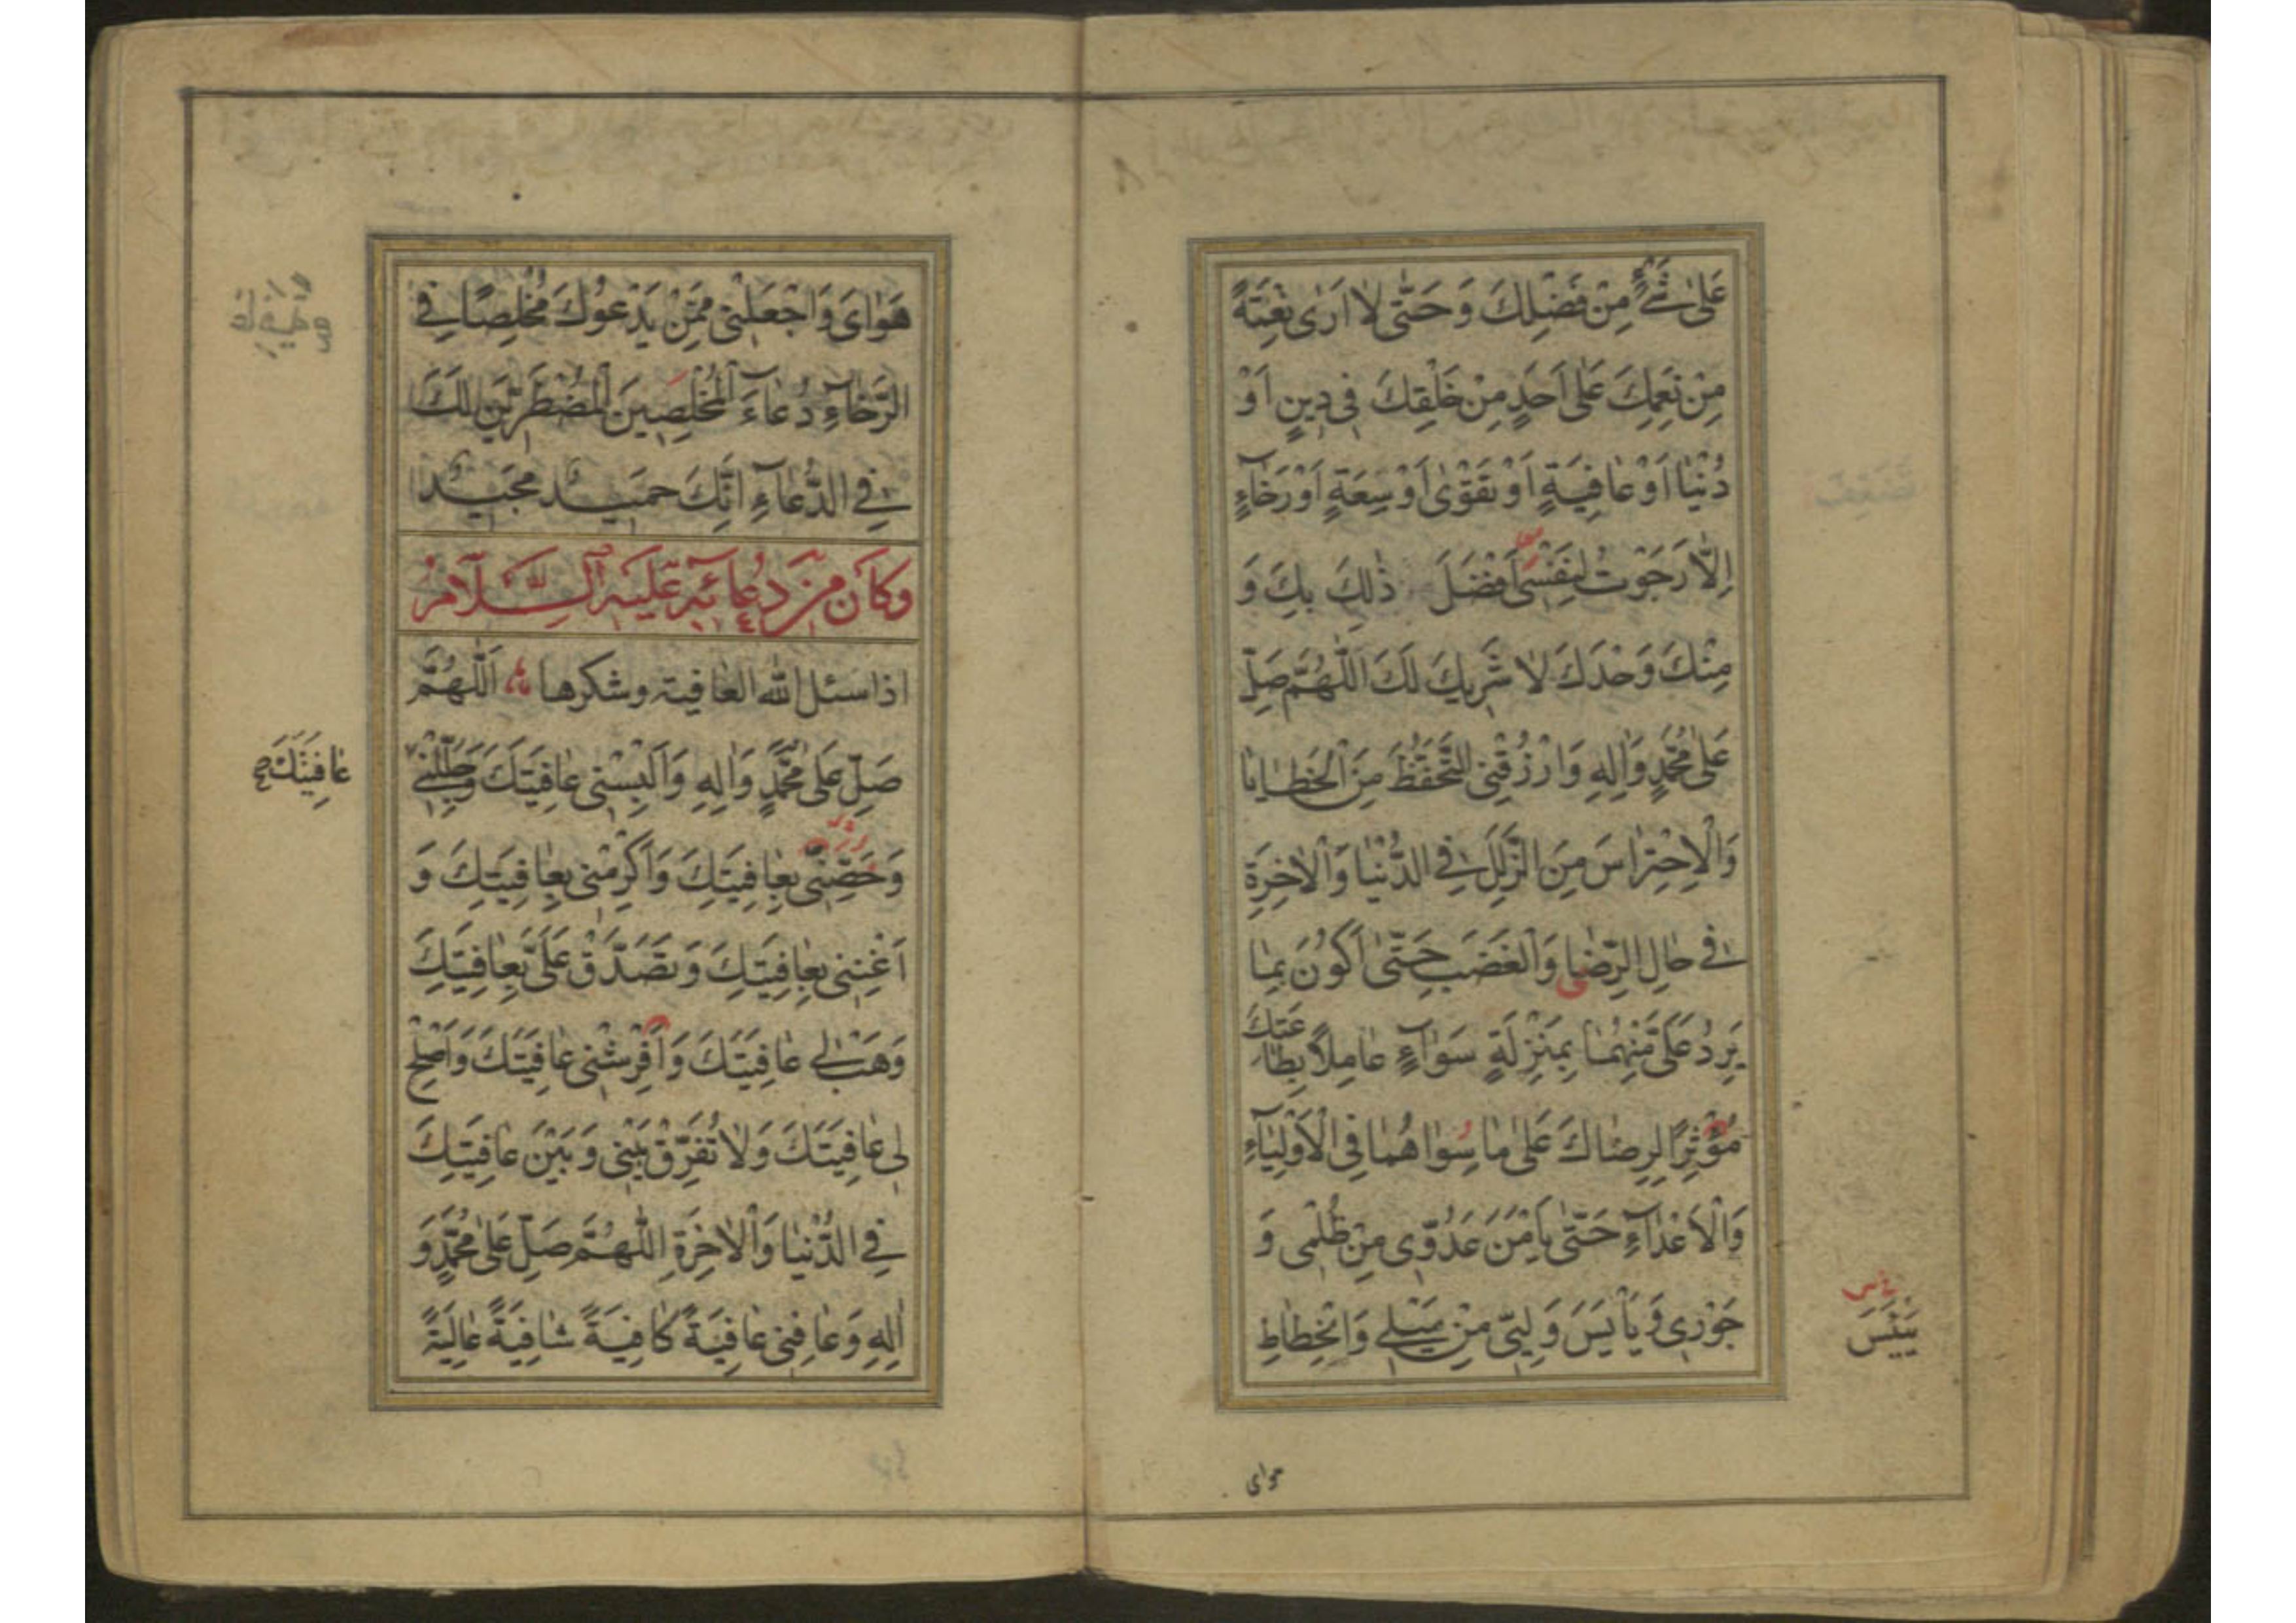 عَلىٰ شَیْءٍ مِنْ فَضْلِكَ وَ حَتّٰى لاٰ اَرٰى نِعْمَةً
مِنْ نِعَمِكَ عَلىٰ اَحَدٍ مِنْ خَلْقِكَ فى دِينٍ اَوْ
دُنْيٰا اَوْ عٰافِيَةٍ اَوْ تَقْوٰى اَوْ سِعَةٍ اَوْ رَخٰآءٍ
اِلاّٰ رَجَوْتُ لِنَفْسى اَفْضَلَ ذٰلِكَ بِكَ وَ
مِنْكَ وَحْدَكَ لاٰ شَرِيكَ لَكَ اَللّٰهُمَّ صَلِّ
عَلىٰ مُحَمَّدٍ وَاٰلِهِ وَارْزُقْنِى التَّحَفُّظَ مِنَ الْخَطٰايٰا
وَالْاِحْتِرٰاسَ مِنَ الزَّلَلِ فِى الدُّنْيٰا وَالْاٰخِرَةِ
فى حٰالِ الرِّضٰا وَالْغَضَبِ حَتّٰى اَكُونَ بِمٰا
يَرِدُ عَلَىَّ مِنْهُمٰا بِمَنْزِلَةٍ سَوٰآءٍ عٰامِلاً بِطٰاعَتِكَ
مُؤْثِرًا لِرِضٰاكَ عَلىٰ مٰا سِوٰاهُمٰا فِى الْاَوْلِيٰآءِ
وَالْاَعْدٰآءِ حَتّٰى يَاْمَنَ عَدُوّى مِنْ ظُلْمى وَ
جَوْرى وَ يَاْيَسَ وَلِيّى مِنْ مَيْلى وَانْحِطٰاطِ
يَيْئَسَ
هواى
هَوٰاىَ وَاجْعَلْنى مِمَّنْ يَدْعُوكَ مُخْلِصًا فِى
الرَّخٰآءِ دُعٰآءَ الْمُخْلِصِينَ الْمُضْطَرّينَ لَكَ
فِى الدُّعٰآءِ اِنَّكَ حَمِيدٌ مَجِيدٌ
وَكٰانَ مِنْ دُعٰائِهِ عَلَيْهِ السَّلاٰمُ
اذا سئل الله العافية وشكرها اَللّٰهُمَّ
صَلِّ عَلىٰ مُحَمَّدٍ وَاٰلِهِ وَاَلْبِسْنى عٰافِيَتَكَ وَجَلِّلْنى
عٰافِيَتَكَ صح
وَحَصِّنّى بِعٰافِيَتِكَ وَاَكْرِمْنى بِعٰافِيَتِكَ وَ
اَغْنِنى بِعٰافِيَتِكَ وَتَصَدَّقْ عَلَىَّ بِعٰافِيَتِكَ
وَهَبْ لى عٰافِيَتَكَ وَاَفْرِشْنى عٰافِيَتَكَ وَاَصْلِحْ
لى عٰافِيَتَكَ وَلاٰ تُفَرِّقْ بَيْنى وَبَيْنَ عٰافِيَتِكَ
فِى الدُّنْيٰا وَالْاٰخِرَةِ اَللّٰهُمَّ صَلِّ عَلىٰ مُحَمَّدٍ وَ
اٰلِهِ وَعٰافِنى عٰافِيَةً كٰافِيَةً شٰافِيَةً عٰالِيَةً